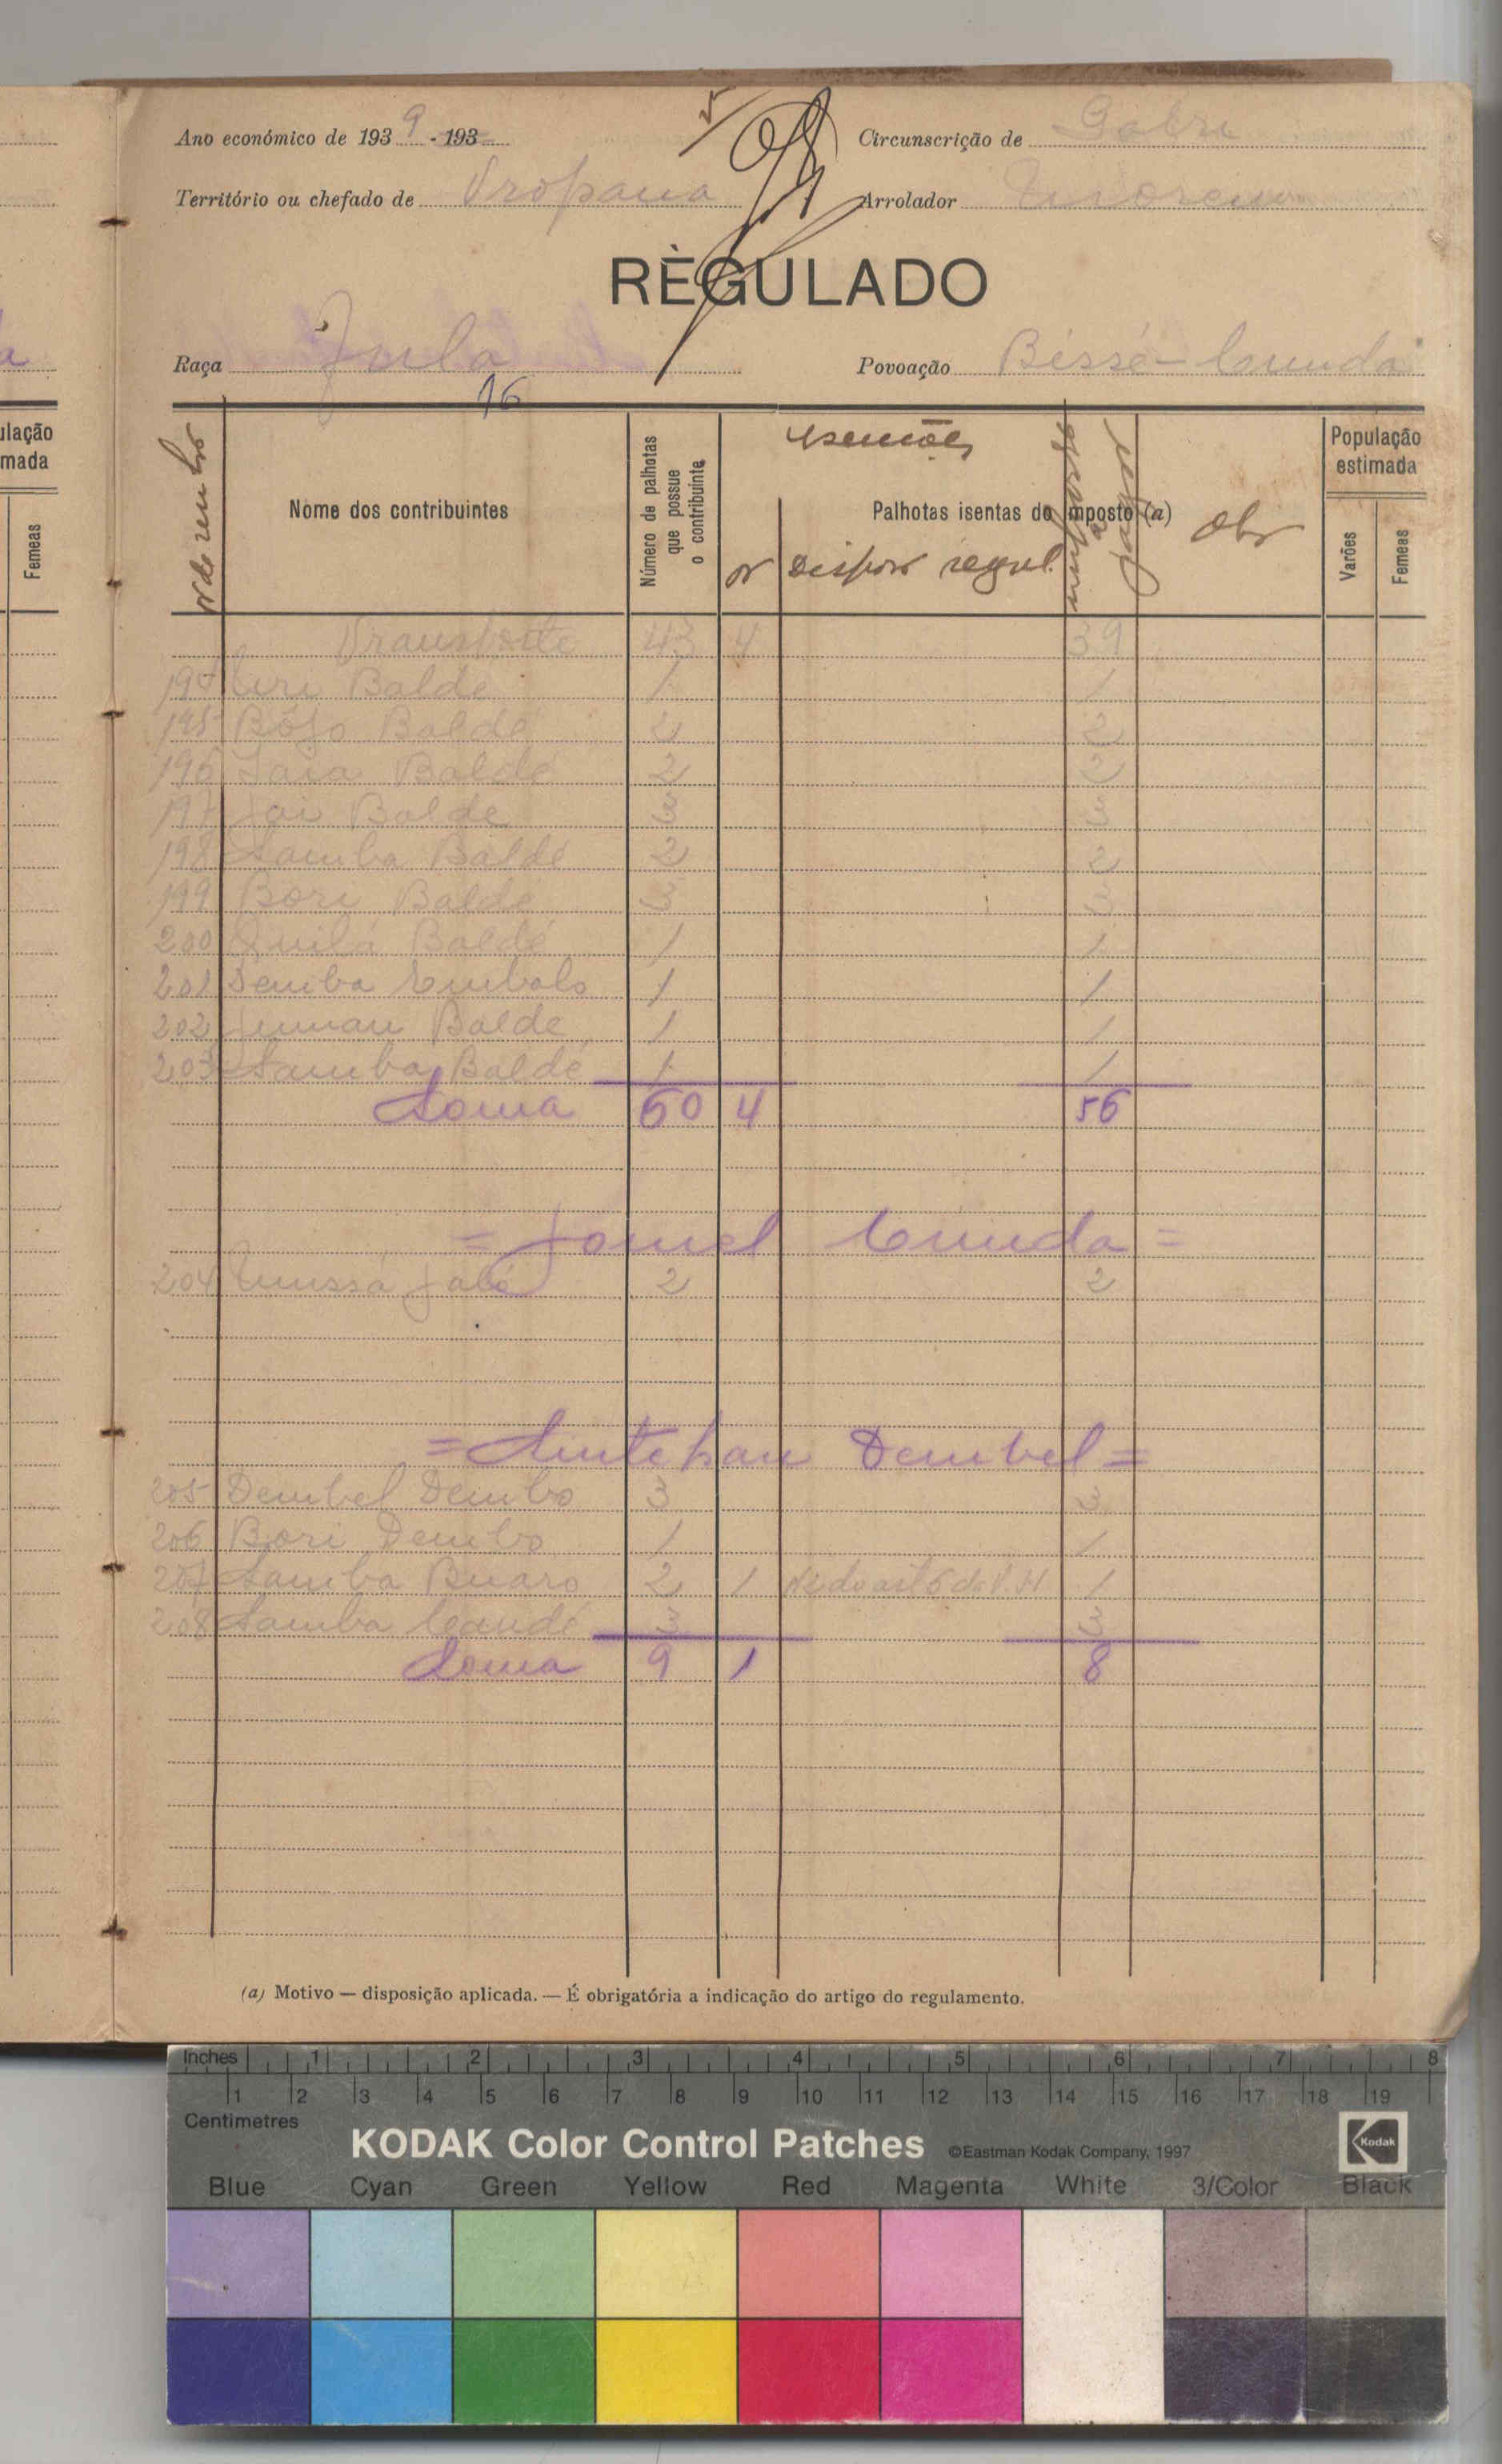 Ano económico de 1939 - 193
Circunscrição de Gabu
Território ou chefado de Propana
Arrolador
RÈGULADO
Raça Fula
Povoação Bissé-Cunda
16
Nome dos contribuintes
Número de palhotas que possue o contribuinte
isenções
Palhotas isentas do imposto (a)
Dispos regul.
imposto a pagar
Obs
População estimada
Varões
Femeas
ulação
mada
Femeas
Transporte 43 4 39
194 Balde 1 1
195 Baldé 2 2
196 Baldé 2 2
197 Balde 3 3
198 Samba Baldé 2 2
199 Bori Baldé 3 3
200 Baldé 1 1
201 Demba Embalo 1 1
202 Balde 1 1
203 Samba Baldé 1 1
Soma 60 4 56
= Cunda =
204 2 2
= Sintchan Dembel =
205 Dembel Dembo 3 3
206 Bori Dembo 1 1
207 Samba Buaro 2 1 1
208 Samba Candé 3 3
Soma 9 1 8
(a) Motivo — disposição aplicada. — É obrigatória a indicação do artigo do regulamento.
Inches 1 2 3 4 5 6 7 8
1 2 3 4 5 6 7 8 9 10 11 12 13 14 15 16 17 18 19
Centimetres
KODAK Color Control Patches ©Eastman Kodak Company, 1997 Kodak
Blue Cyan Green Yellow Red Magenta White 3/Color Black